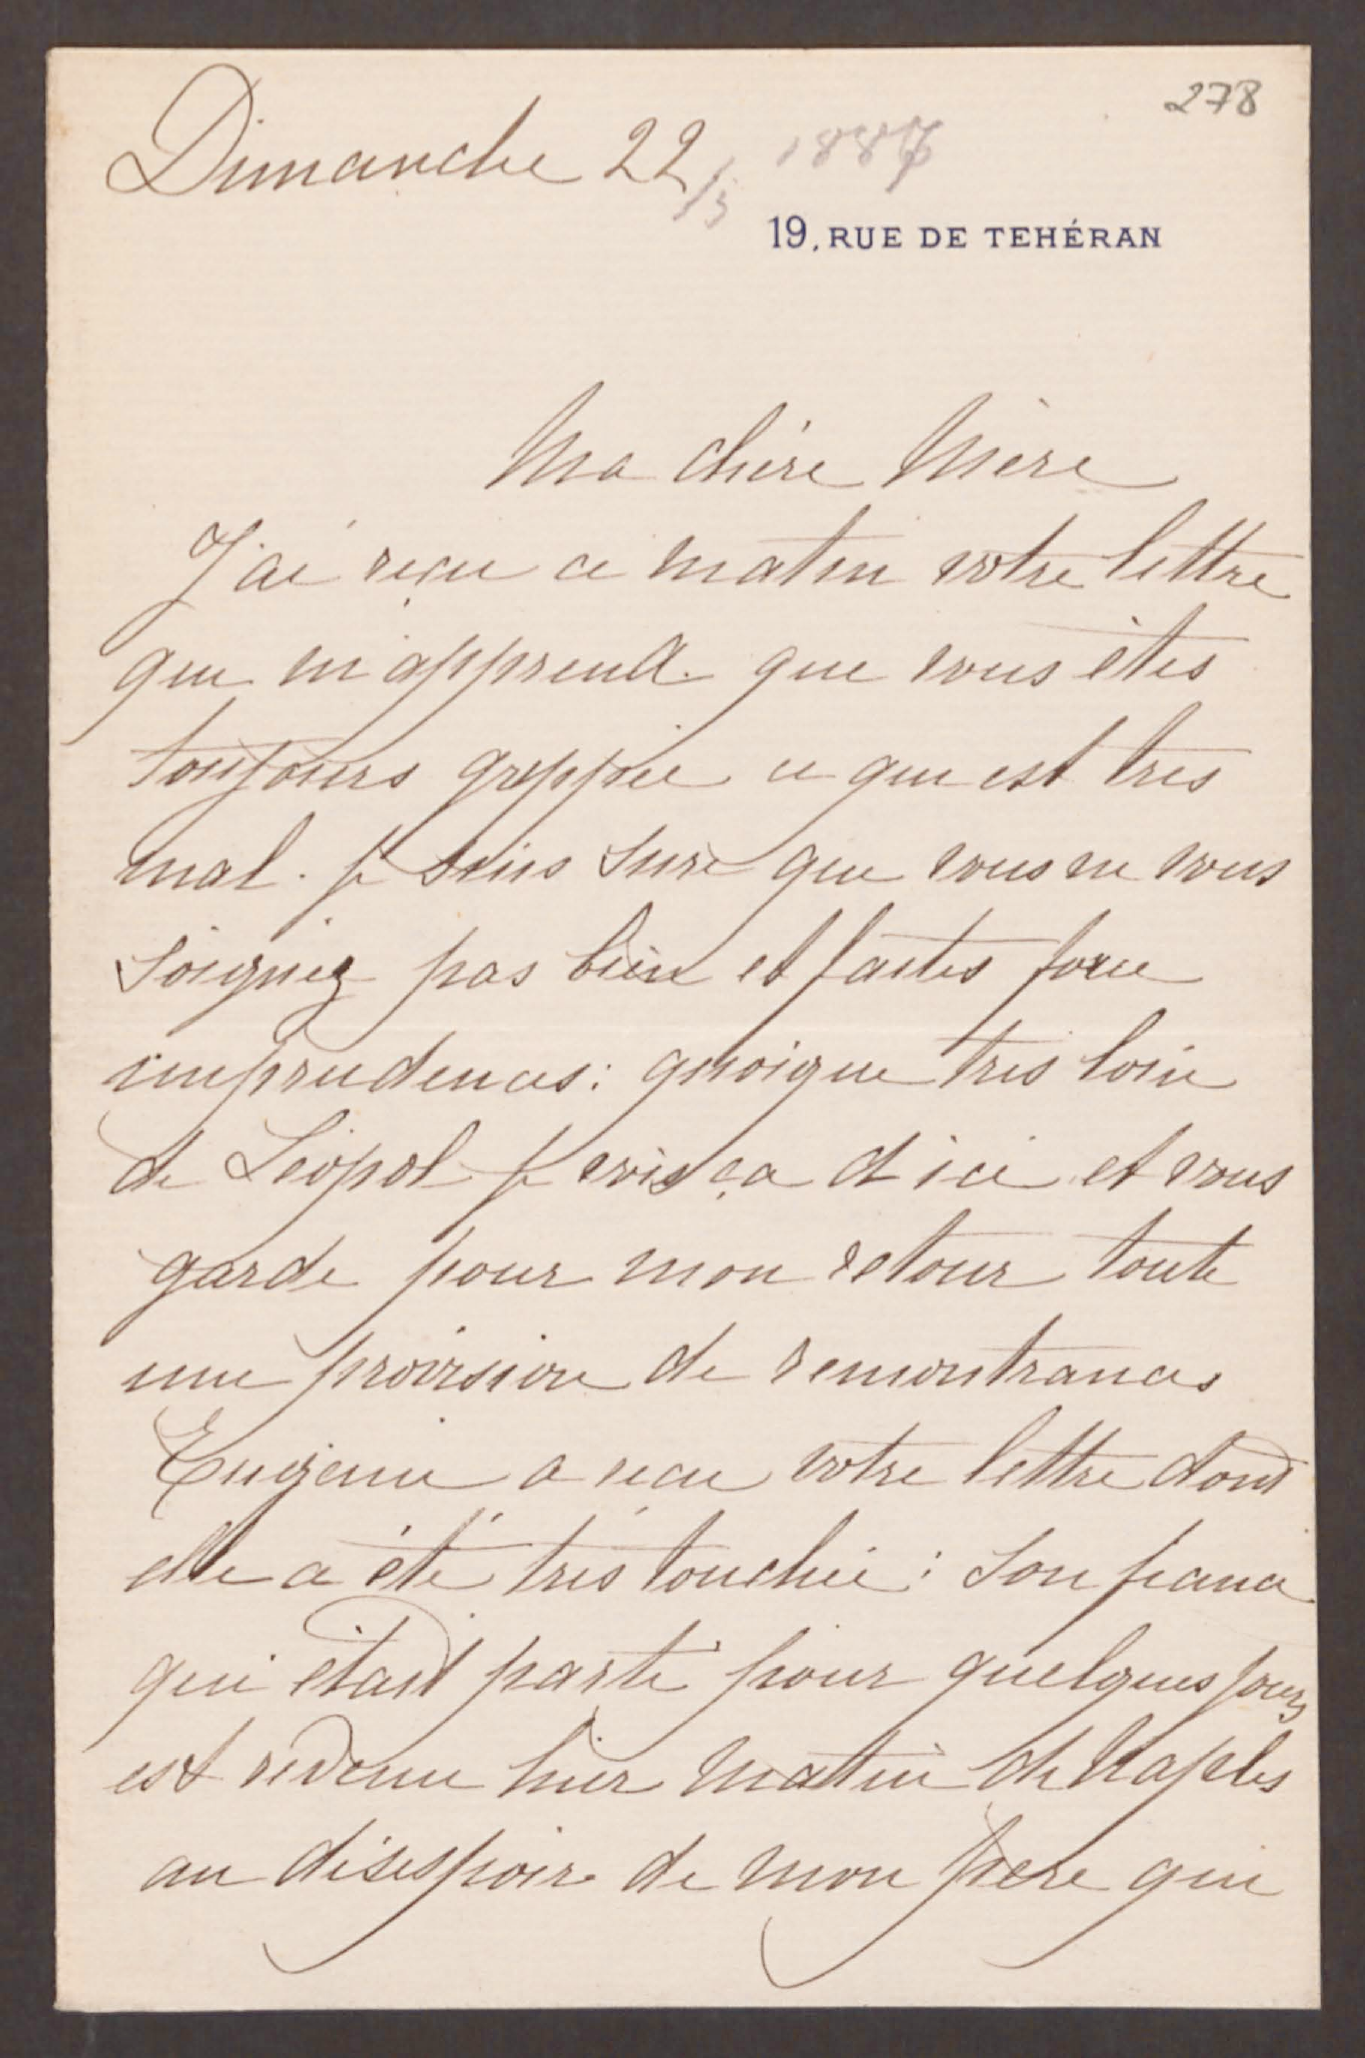 278
Dimanche 22/5 1887
19, RUE DE TEHÉRAN
Ma chère Mère
J'ai reçu ce matin votre lettre
qui m'apprend que vous êtes
toujours grippée ce qui est très
mal. Je suis sure que vous ne vous
soignez pas bien et faites force
imprudences : quoique très loin
de Léopol je vois ça d'ici et vous
garde pour mon retour toute
une provision de remontrances
Eugénie a reçu votre lettre dont
elle a été très touchée : son fiancé
qui était parti pour quelques jours
est revenu hier matin de Naples
au désespoir de mon père qui